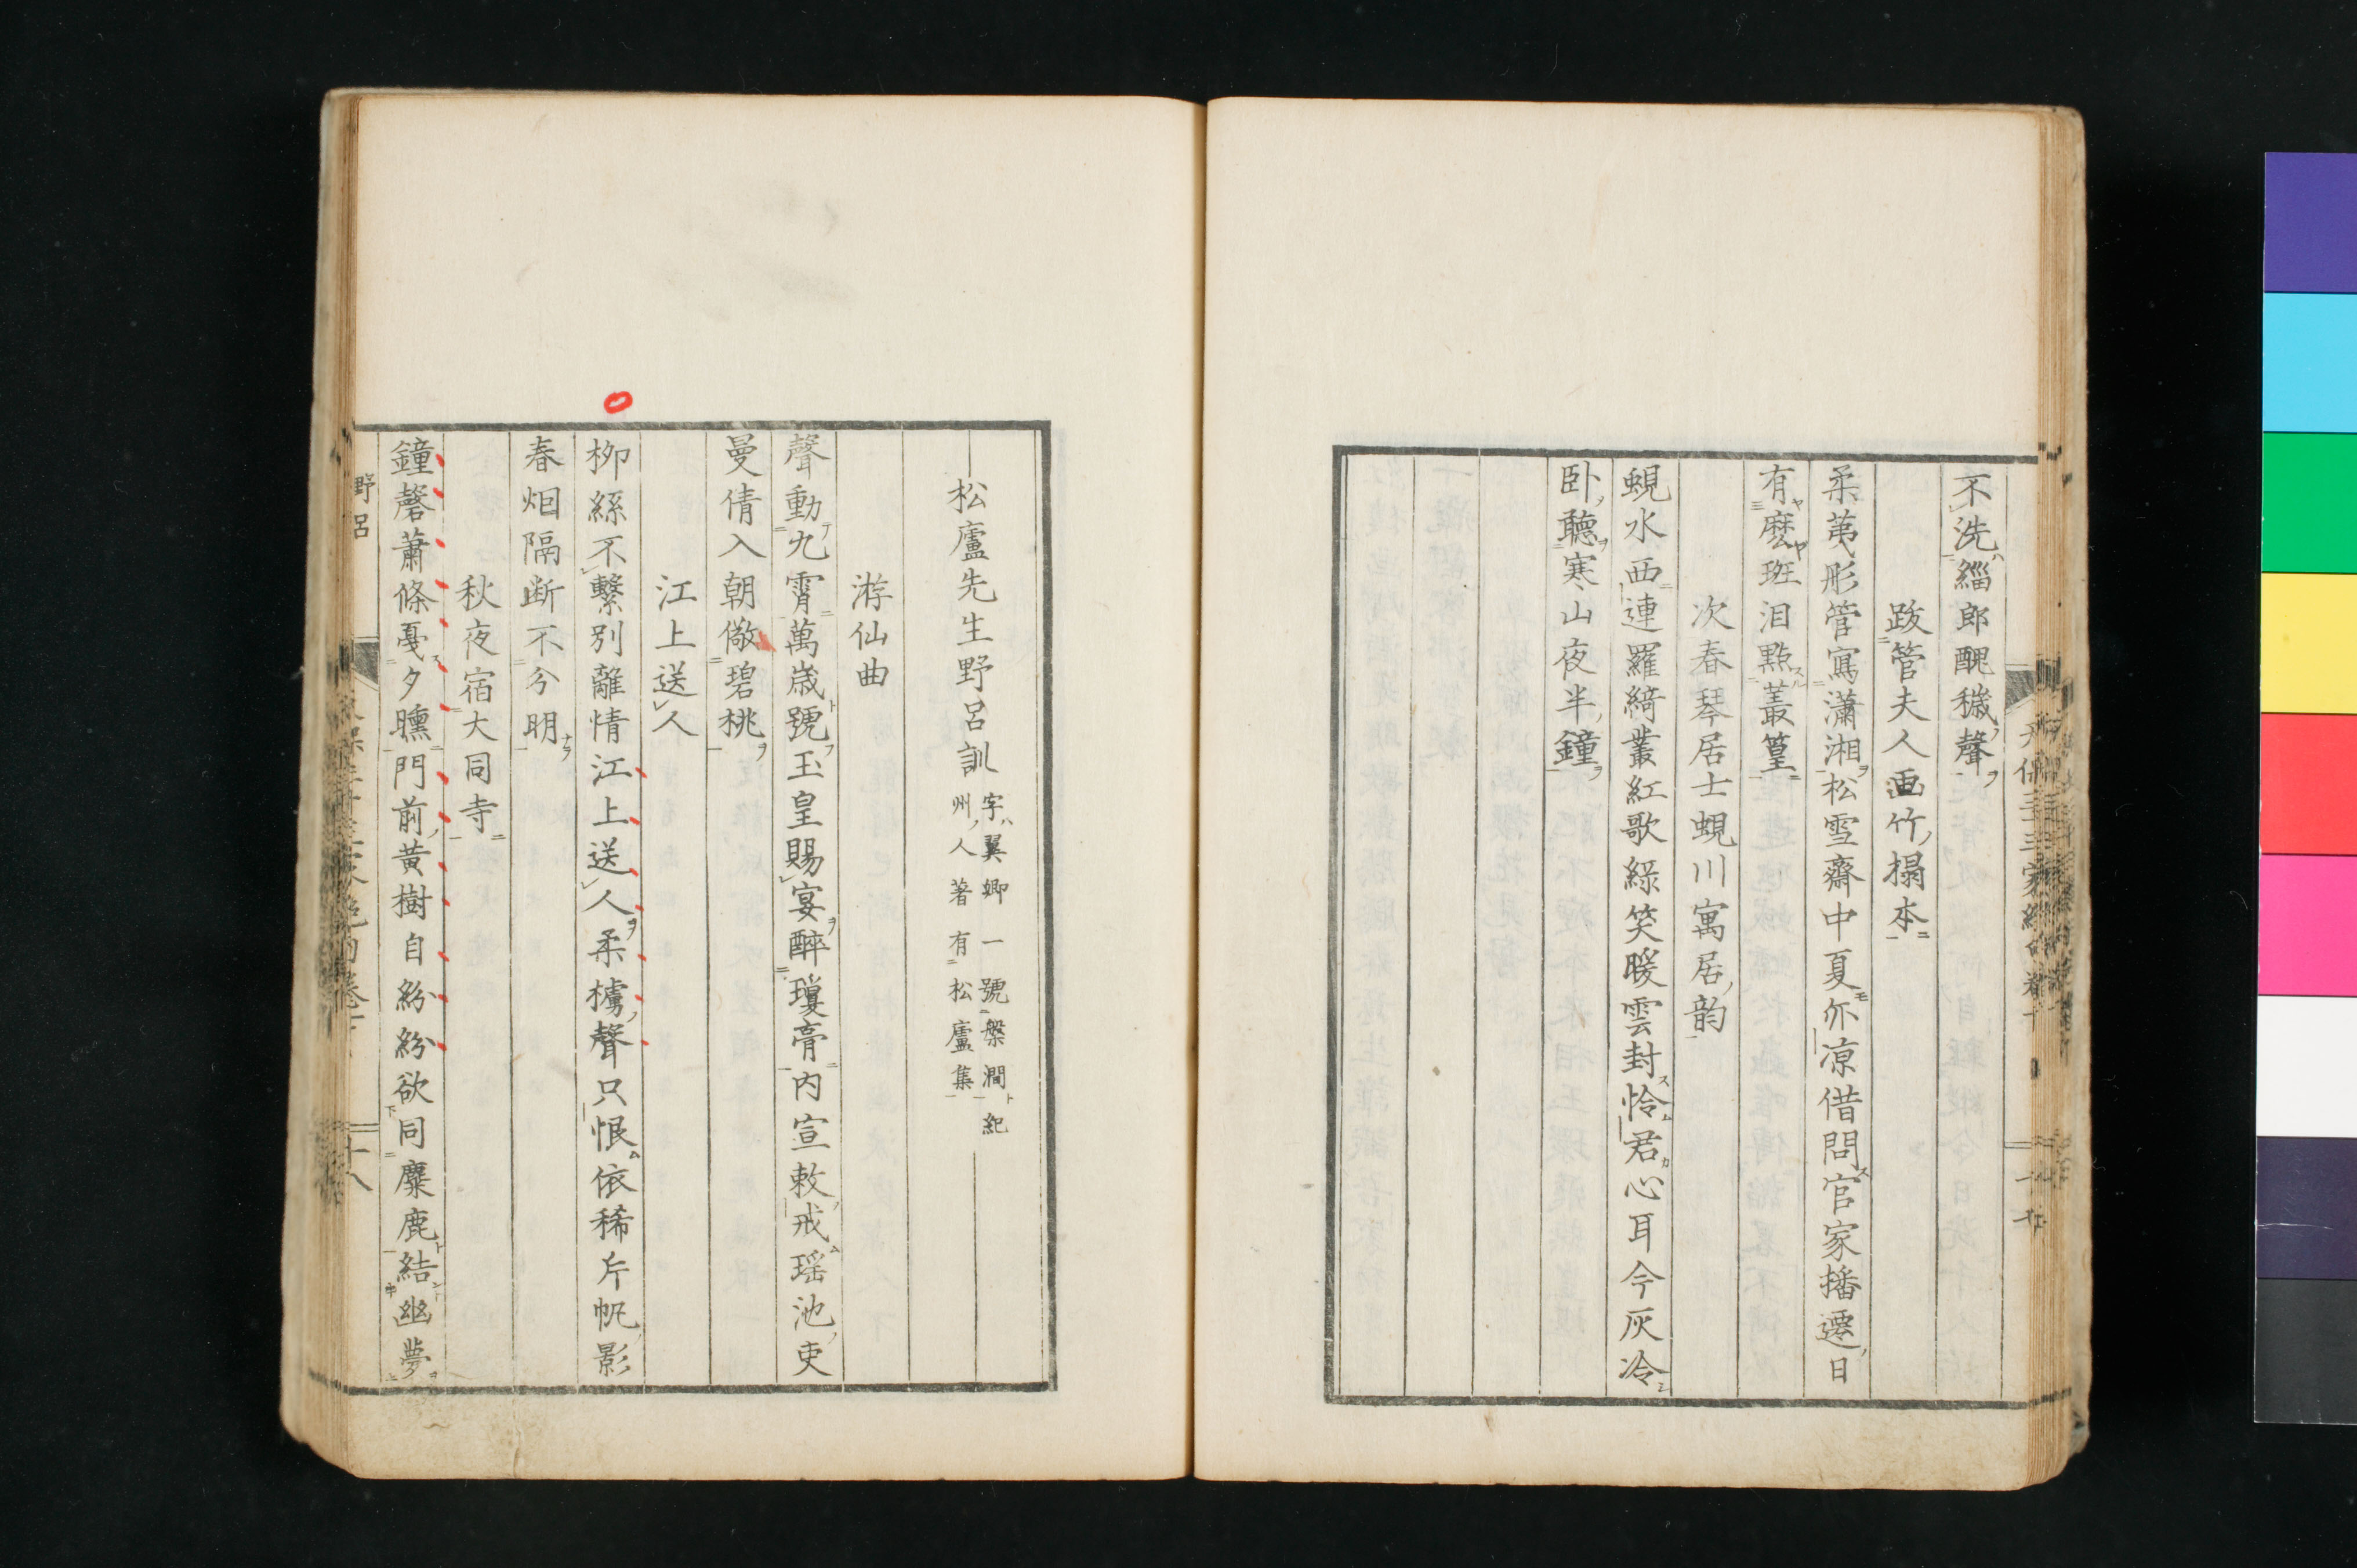 不洗緇郎醜穢聲
跋管夫人画竹搨本
柔荑彤管寫瀟湘松雪齋中夏亦凉借問官家播遷日
有麽班泪點叢篁
次春琴居士蜆川寓居韵
蜆水西連羅綺叢紅歌綠笑暖雲封怜君心耳今灰冷
卧聽寒山夜半鐘
十七
松廬先生野呂訓
字翼卿一號盤澗紀
州人著有松廬集
游仙曲
聲動九霄萬歳號玉皇賜宴醉瓊膏内宣敕戒瑶池吏
曼倩入朝儆碧桃
江上送人
柳絲不繫別離情江上送人柔櫓聲只恨依稀片帆影
春烟隔断不分明
秋夜宿大同寺
鐘磬蕭條戞夕曛門前黄樹自紛紛欲同麋鹿結幽夢
野呂
十八